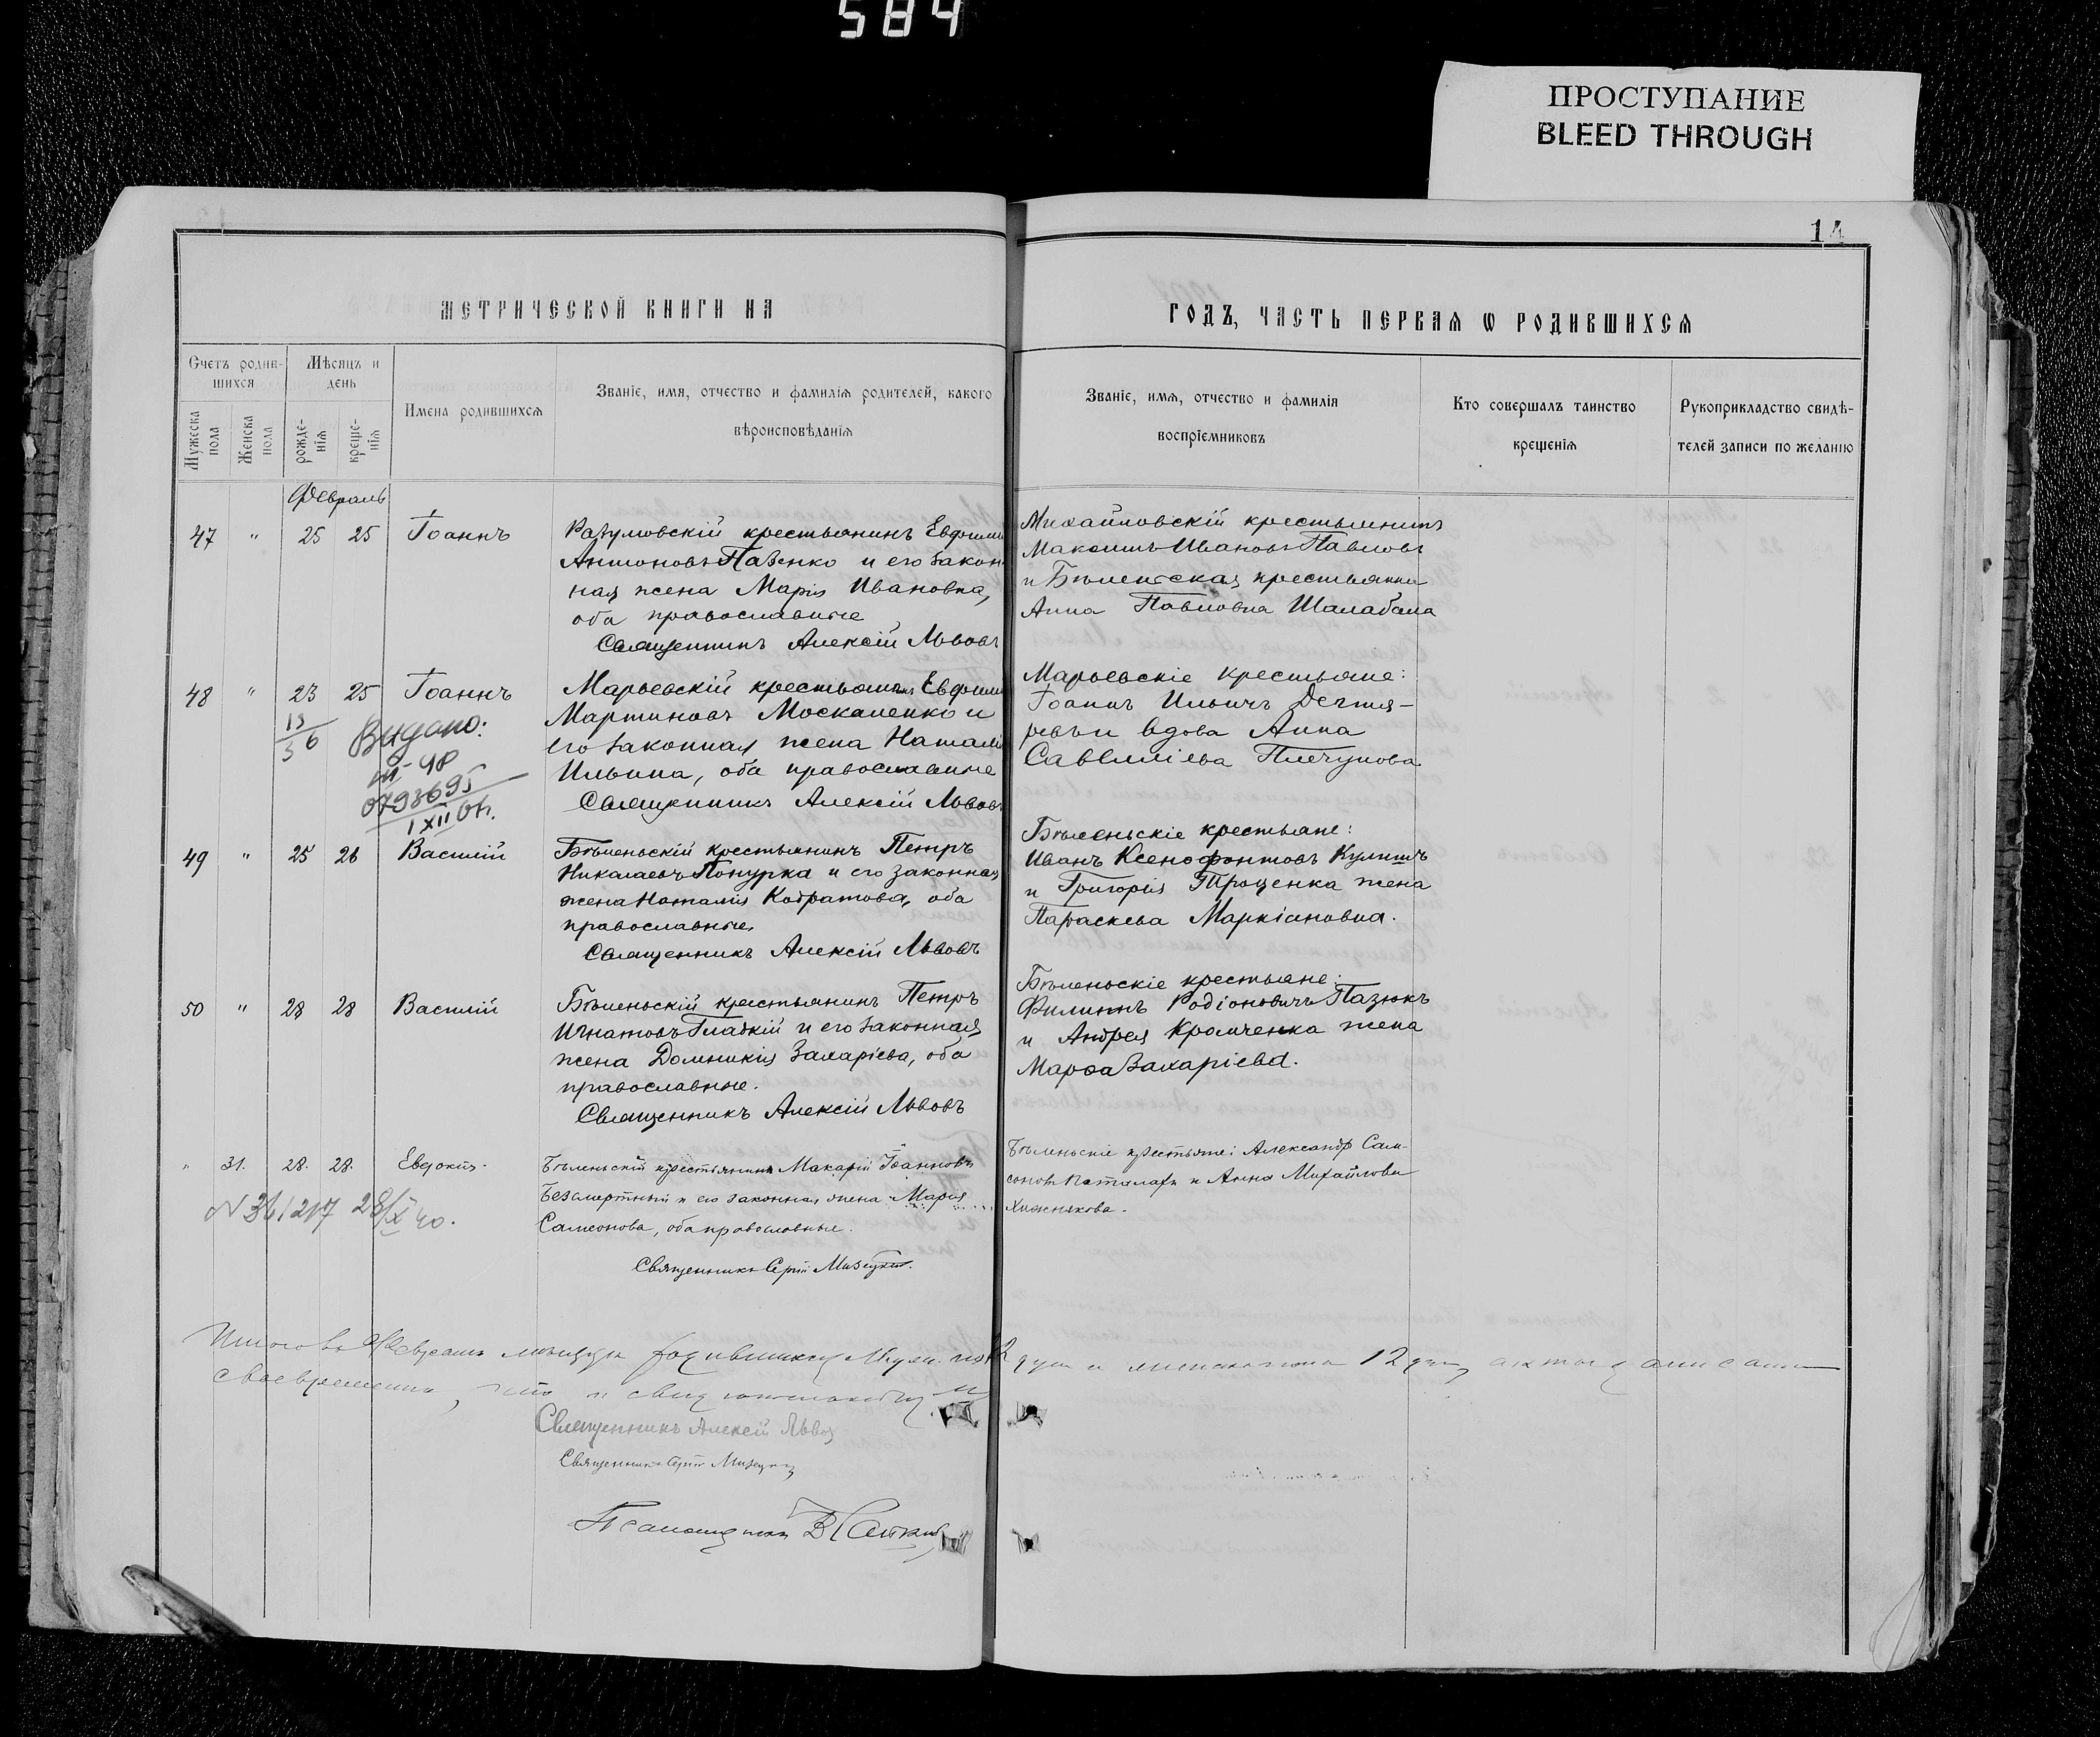 584
ПРОСТУПАНИЕ
BLEED THROUGH
14
МЕТРИЧЕСКОЙ КНИГИ НА
ГОДЪ, ЧАСТЬ ПЕРВАЯ Ѡ РОДИВШИХСЯ
Счетъ родив-
шихся
Мѣсяцъ и
день
Мужеска
пола
Женска
пола
рожде-
нія
креще-
нія
Имена родившихся
Званіе, имя, отчество и фамилія родителей, какого
вѣроисповѣданія
Званіе, имя, отчество и фамилія
воспріемниковъ
Кто совершалъ таинство
крещенія
Рукоприкладство свидѣ-
телей записи по желанію
Февраль
47 " 25 25 Іоаннъ
Разумовскій крестьянинъ
Антоновъ Павенко и его закон-
ная жена Марія Ивановна,
оба православные
Священникъ Алексій Львовъ
Михайловскій крестьянинъ
Максимъ Ивановъ Павловъ
и Бѣленьская крестьянка
Анна Павловна Шалабала
48 " 23 25 Іоаннъ
Марьевскій крестьянинъ
Мартиновъ Москаленко и
его законная жена
Ильина, оба православные
Священникъ Алексій Львовъ
Марьевскіе крестьяне:
Іоаннъ Ильичъ Дегтя-
ревъ и вдова Анна
Савелліева Плечунова
13
36
Видано:
III-ЧР
0793695
1 XII
49 " 25 26 Василій
Бѣленьскій крестьянинъ Петръ
Николаевъ Понурка и его законная
жена Наталія Кодратова, оба
православные
Священникъ Алексій Львовъ
Бѣленьскіе крестьяне:
Иванъ Ксенофонтовъ Кулишъ
и Григорія Троценка жена
Параскева Маркіановна.
50 " 28 28 Василій
Бѣленьскій крестьянинъ Петръ
Игнатовъ Гладкій и его законная
жена Домникія Захаріева, оба
православные.
Священникъ Алексій Львовъ
Бѣленьскіе крестьяне:
Филиппъ Родіоновичъ Пазюкъ
и Андрея Крамченка жена
Марѳа Захаріева.
" 31. 28. 28. Евдокія.
Бѣленьскій крестьянинъ Макарій Іоанновъ
Безсмертный и его законная жена Марія
Самсонова, оба православные.
Священникъ Сергій Мизецкій.
Бѣленьскіе крестьяне: Александр Сам-
соновъ и Анна Михайлова
Хижнякова.
N 361217 28/X 40.
Итого въ Февралѣ мѣсяцѣ родившихся душъ и женскаго пола 12 душъ, акты записаны
своевременно, что и свидѣтельствуемъ
Священникъ Алексій Львовъ
Священникъ Сергій Мизецкій
Псаломщикъ